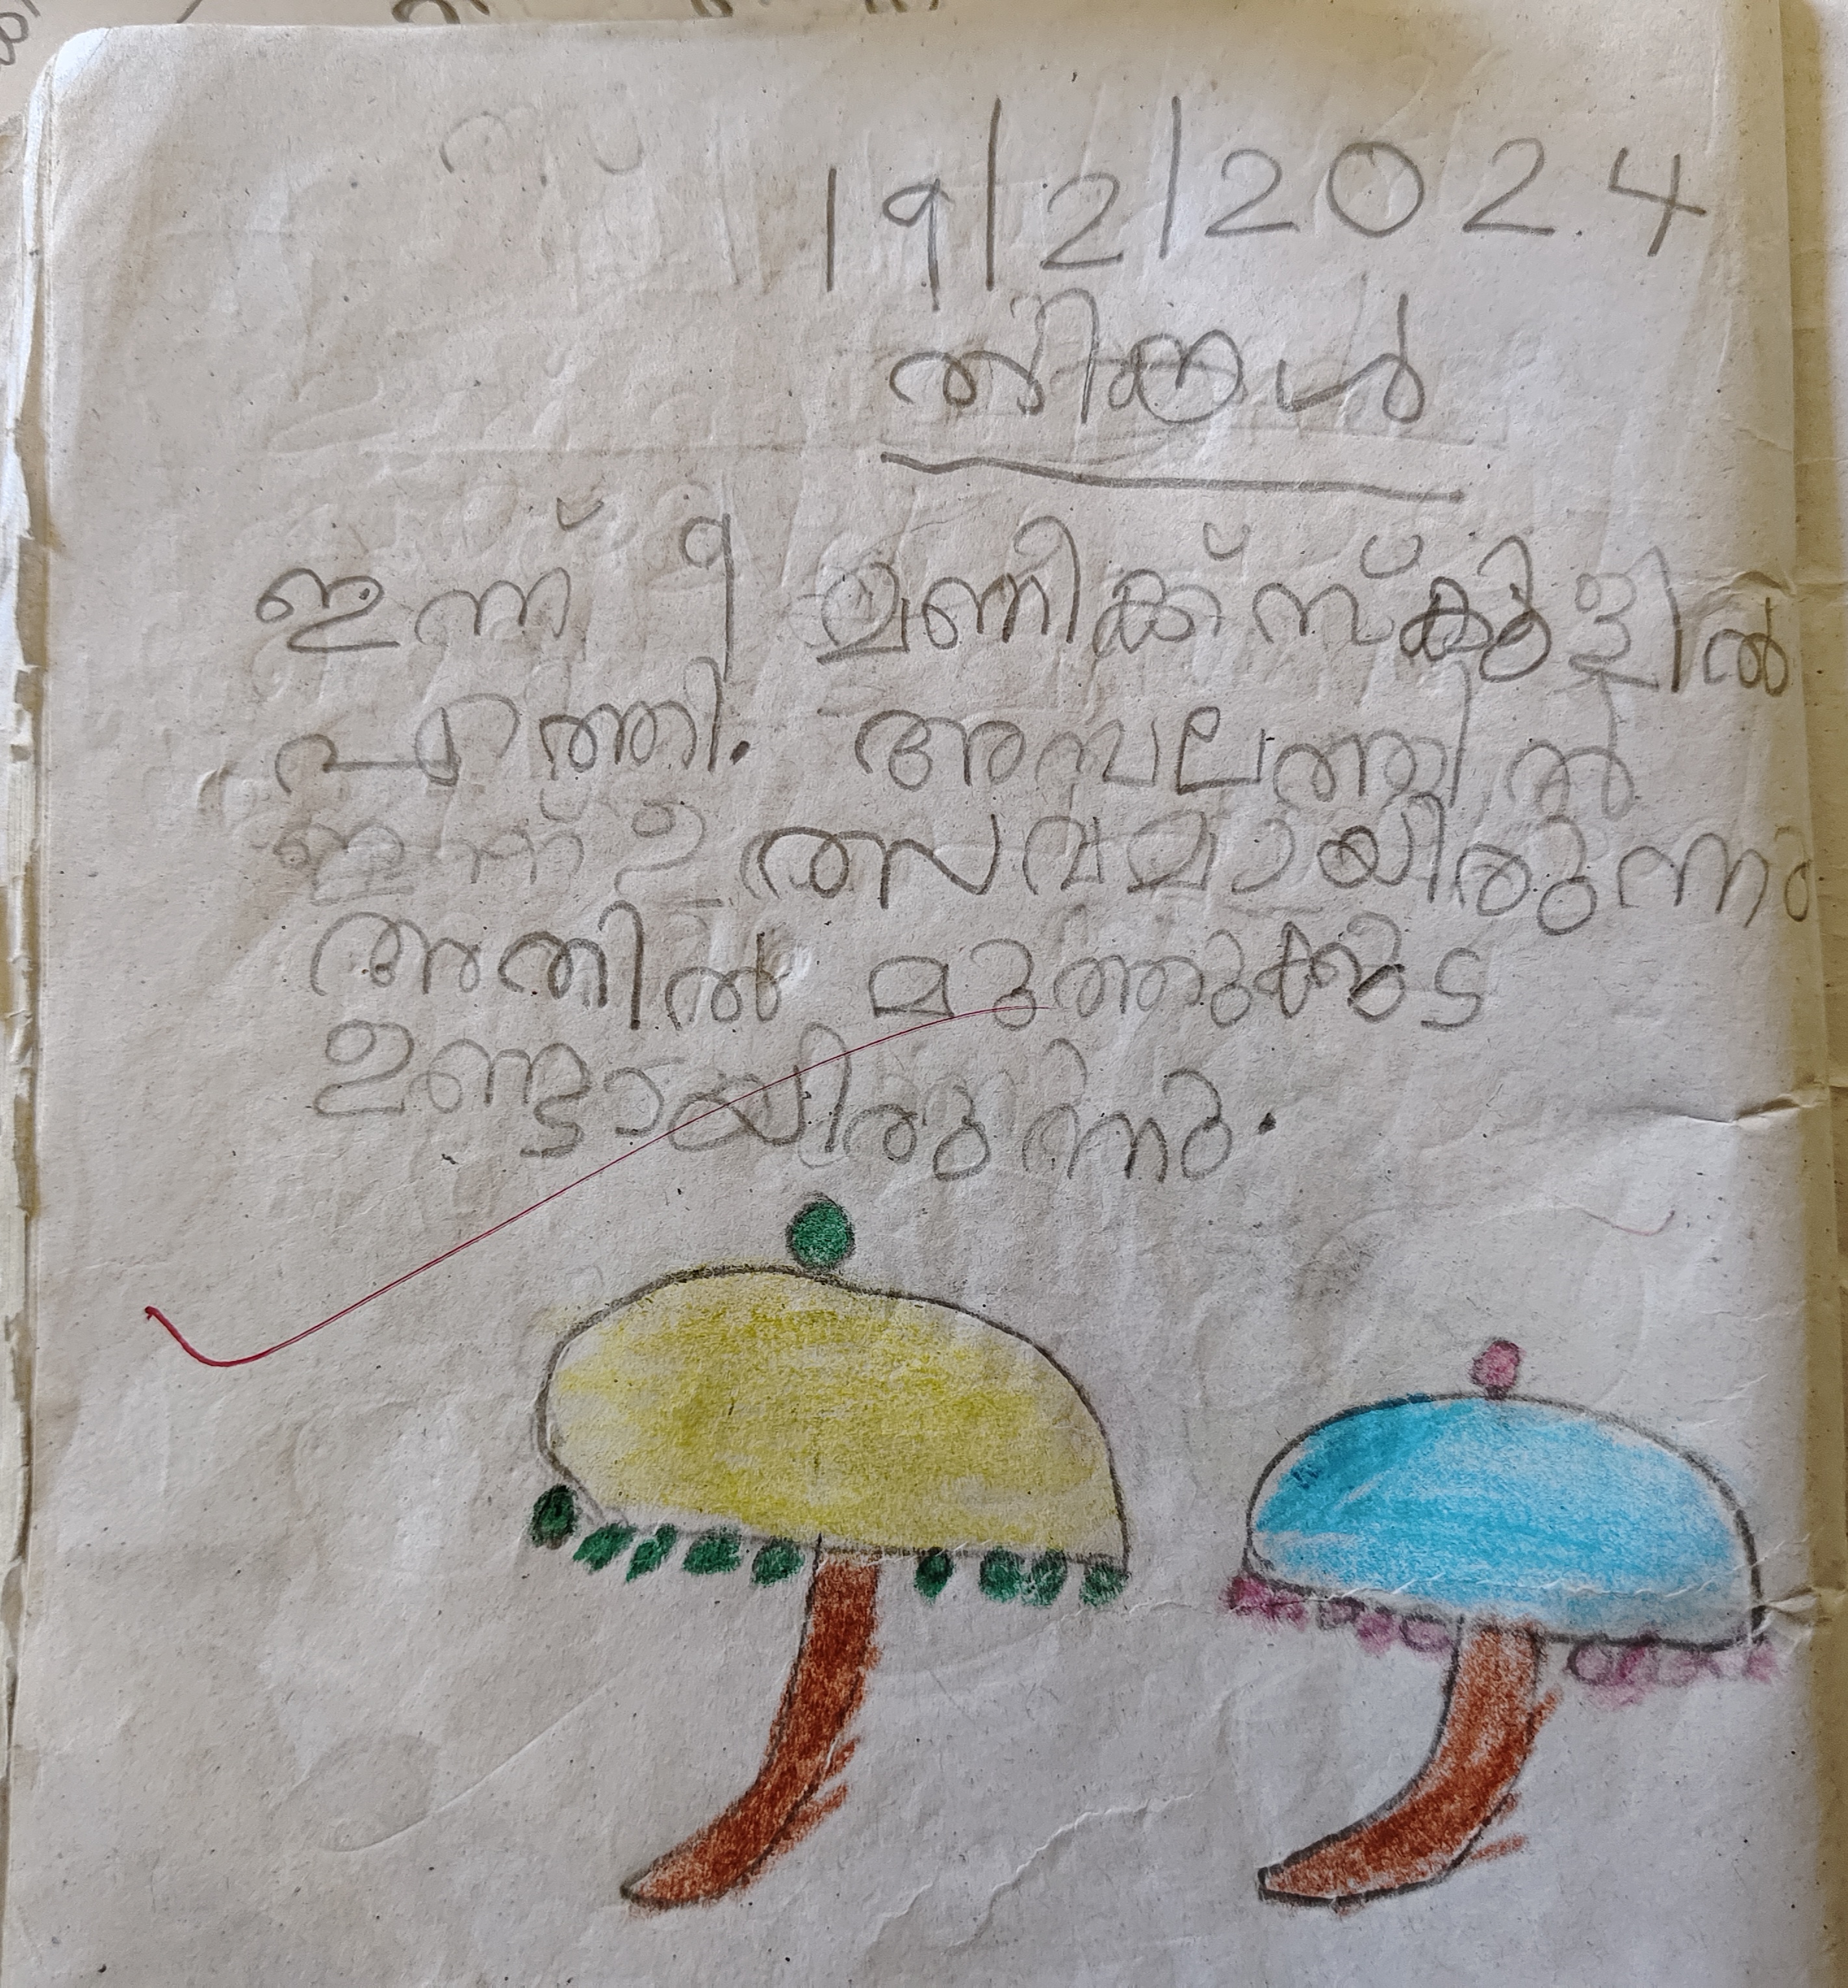 19/2/2024
തിങ്കൾ
ഇന്ന് 9 മണിക്ക് സ്കൂളിൽ
എത്തി. അമ്പലത്തിൽ
ഇന്ന് ഉത്സവമായിരുന്നു
അതിൽ മുത്തുക്കുട
ഉണ്ടായിരുന്നു.